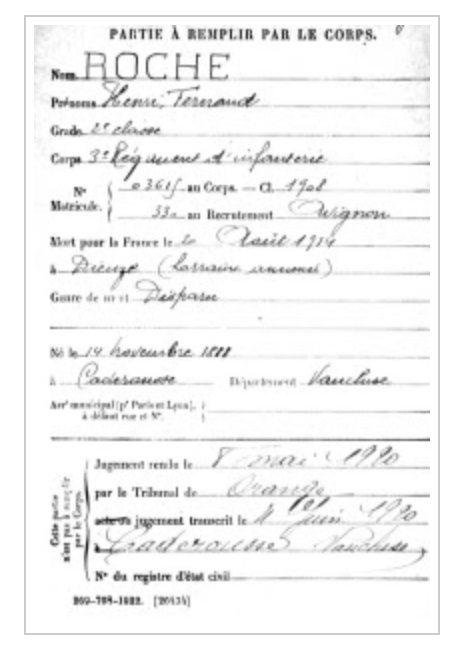 PARTIE À REMPLIR PAR LE CORPS.
Nom ROCHE
Prénoms Henri, Fernand
Grade 2e classe
Corps 3e Régiment d'infanterie
No Matricule. { 03615 au Corps. — Cl. 1908
au Recrutement Avignon
Mort pour la France le 20 Août 1914
à Dieuze (Lorraine annexée)
Genre de mort Disparu
Né le 14 novembre 1888
à Caderousse Département Vaucluse
Arrt municipal (pr Paris et Lyon), à défaut rue et No.
Cette partie n'est pas à remplir par le Corps.
Jugement rendu le 8 mai 1920
par le Tribunal de Orange
acte ou jugement transcrit le 1er juin 1920
à Caderousse Vaucluse
No du registre d'état civil
[26434]